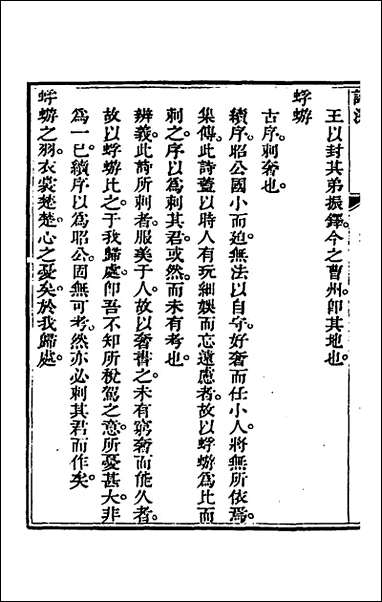 王以封其弟振鐸。今之曹州卽其地也。
蜉蝣
古序。刺奢也。
續序。昭公國小而迫。無法以自守。好奢而任小人。將無所依焉。
集傳。此詩蓋以時人有玩細娛而忘遠慮者。故以蜉蝣爲比而
刺之。序以爲刺其君。或然。而未有考也。
辨義。此詩所刺者。服美于人。故以奢書之。未有窮奢而能久者。
故以蜉蝣比之。于我歸處。卽吾不知所稅駕之意。所憂甚大。非
爲一己。續序以爲昭公。固無可考。然亦必刺其君而作矣。
蜉蝣之羽。衣裳楚楚。心之憂矣。於我歸處。